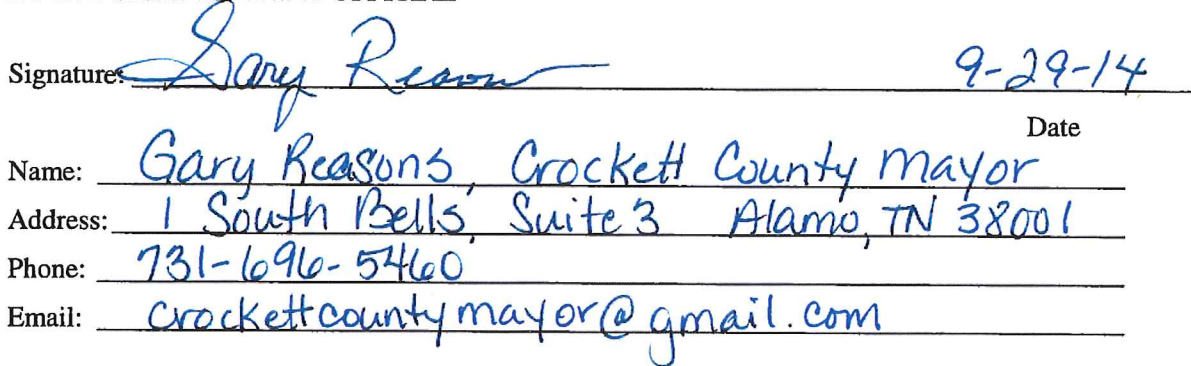 Signature: Gary Reasons 9-29-14
Date
Name: Gary Reasons, Crockett County Mayor
Address: 1 South Bells, Suite 3 Alamo, TN 38001
Phone: 731-696-5460
Email: crockettcountymayor@gmail.com